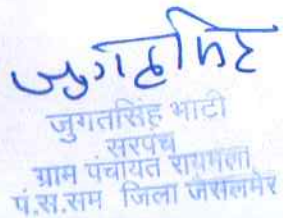 जुगतसिंह
जुगतसिंह भाटी
सरपंच
ग्राम पंचायत रायमला
पं.स.सम जिला जैसलमेर